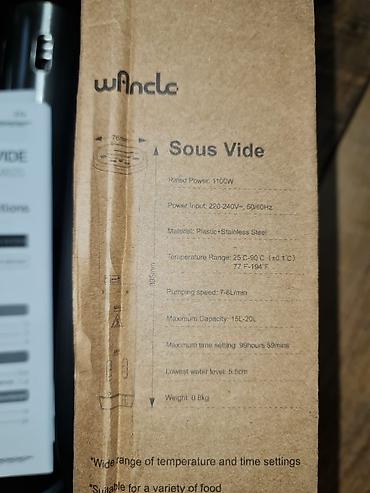 wAncle
76mm
Sous Vide
Rated Power: 1100W
Power Input: 220-240V~, 50/60Hz
Material: Plastic+Stainless Steel
Temperature Range: 25℃-90℃ (±0.1℃)
77℉-194℉
Pumping speed: 7-8L/min
Maximum Capacity: 15L-20L
Maximum time setting: 99hours 59mins
Lowest water level: 5.5cm
Weight: 0.8kg
*Wide range of temperature and time settings
*Suitable for a variety of food
VIDE
tions